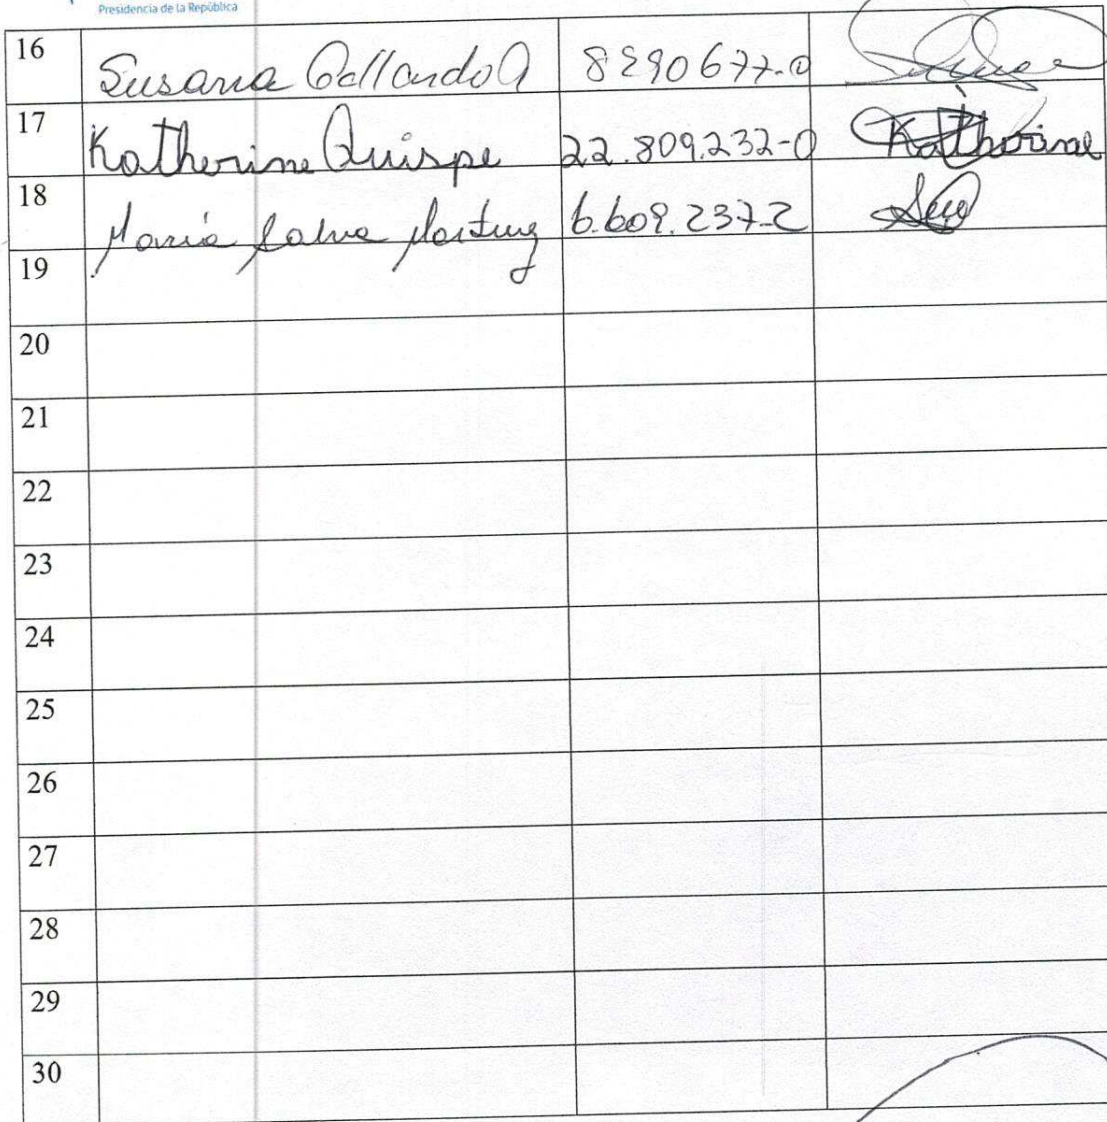 Presidencia de la República
16 Susana Gallardo A 8290677-0
17 Katherine Quispe 22.809.232-0 Katherine
18 María 6.609.237-2
19
20
21
22
23
24
25
26
27
28
29
30